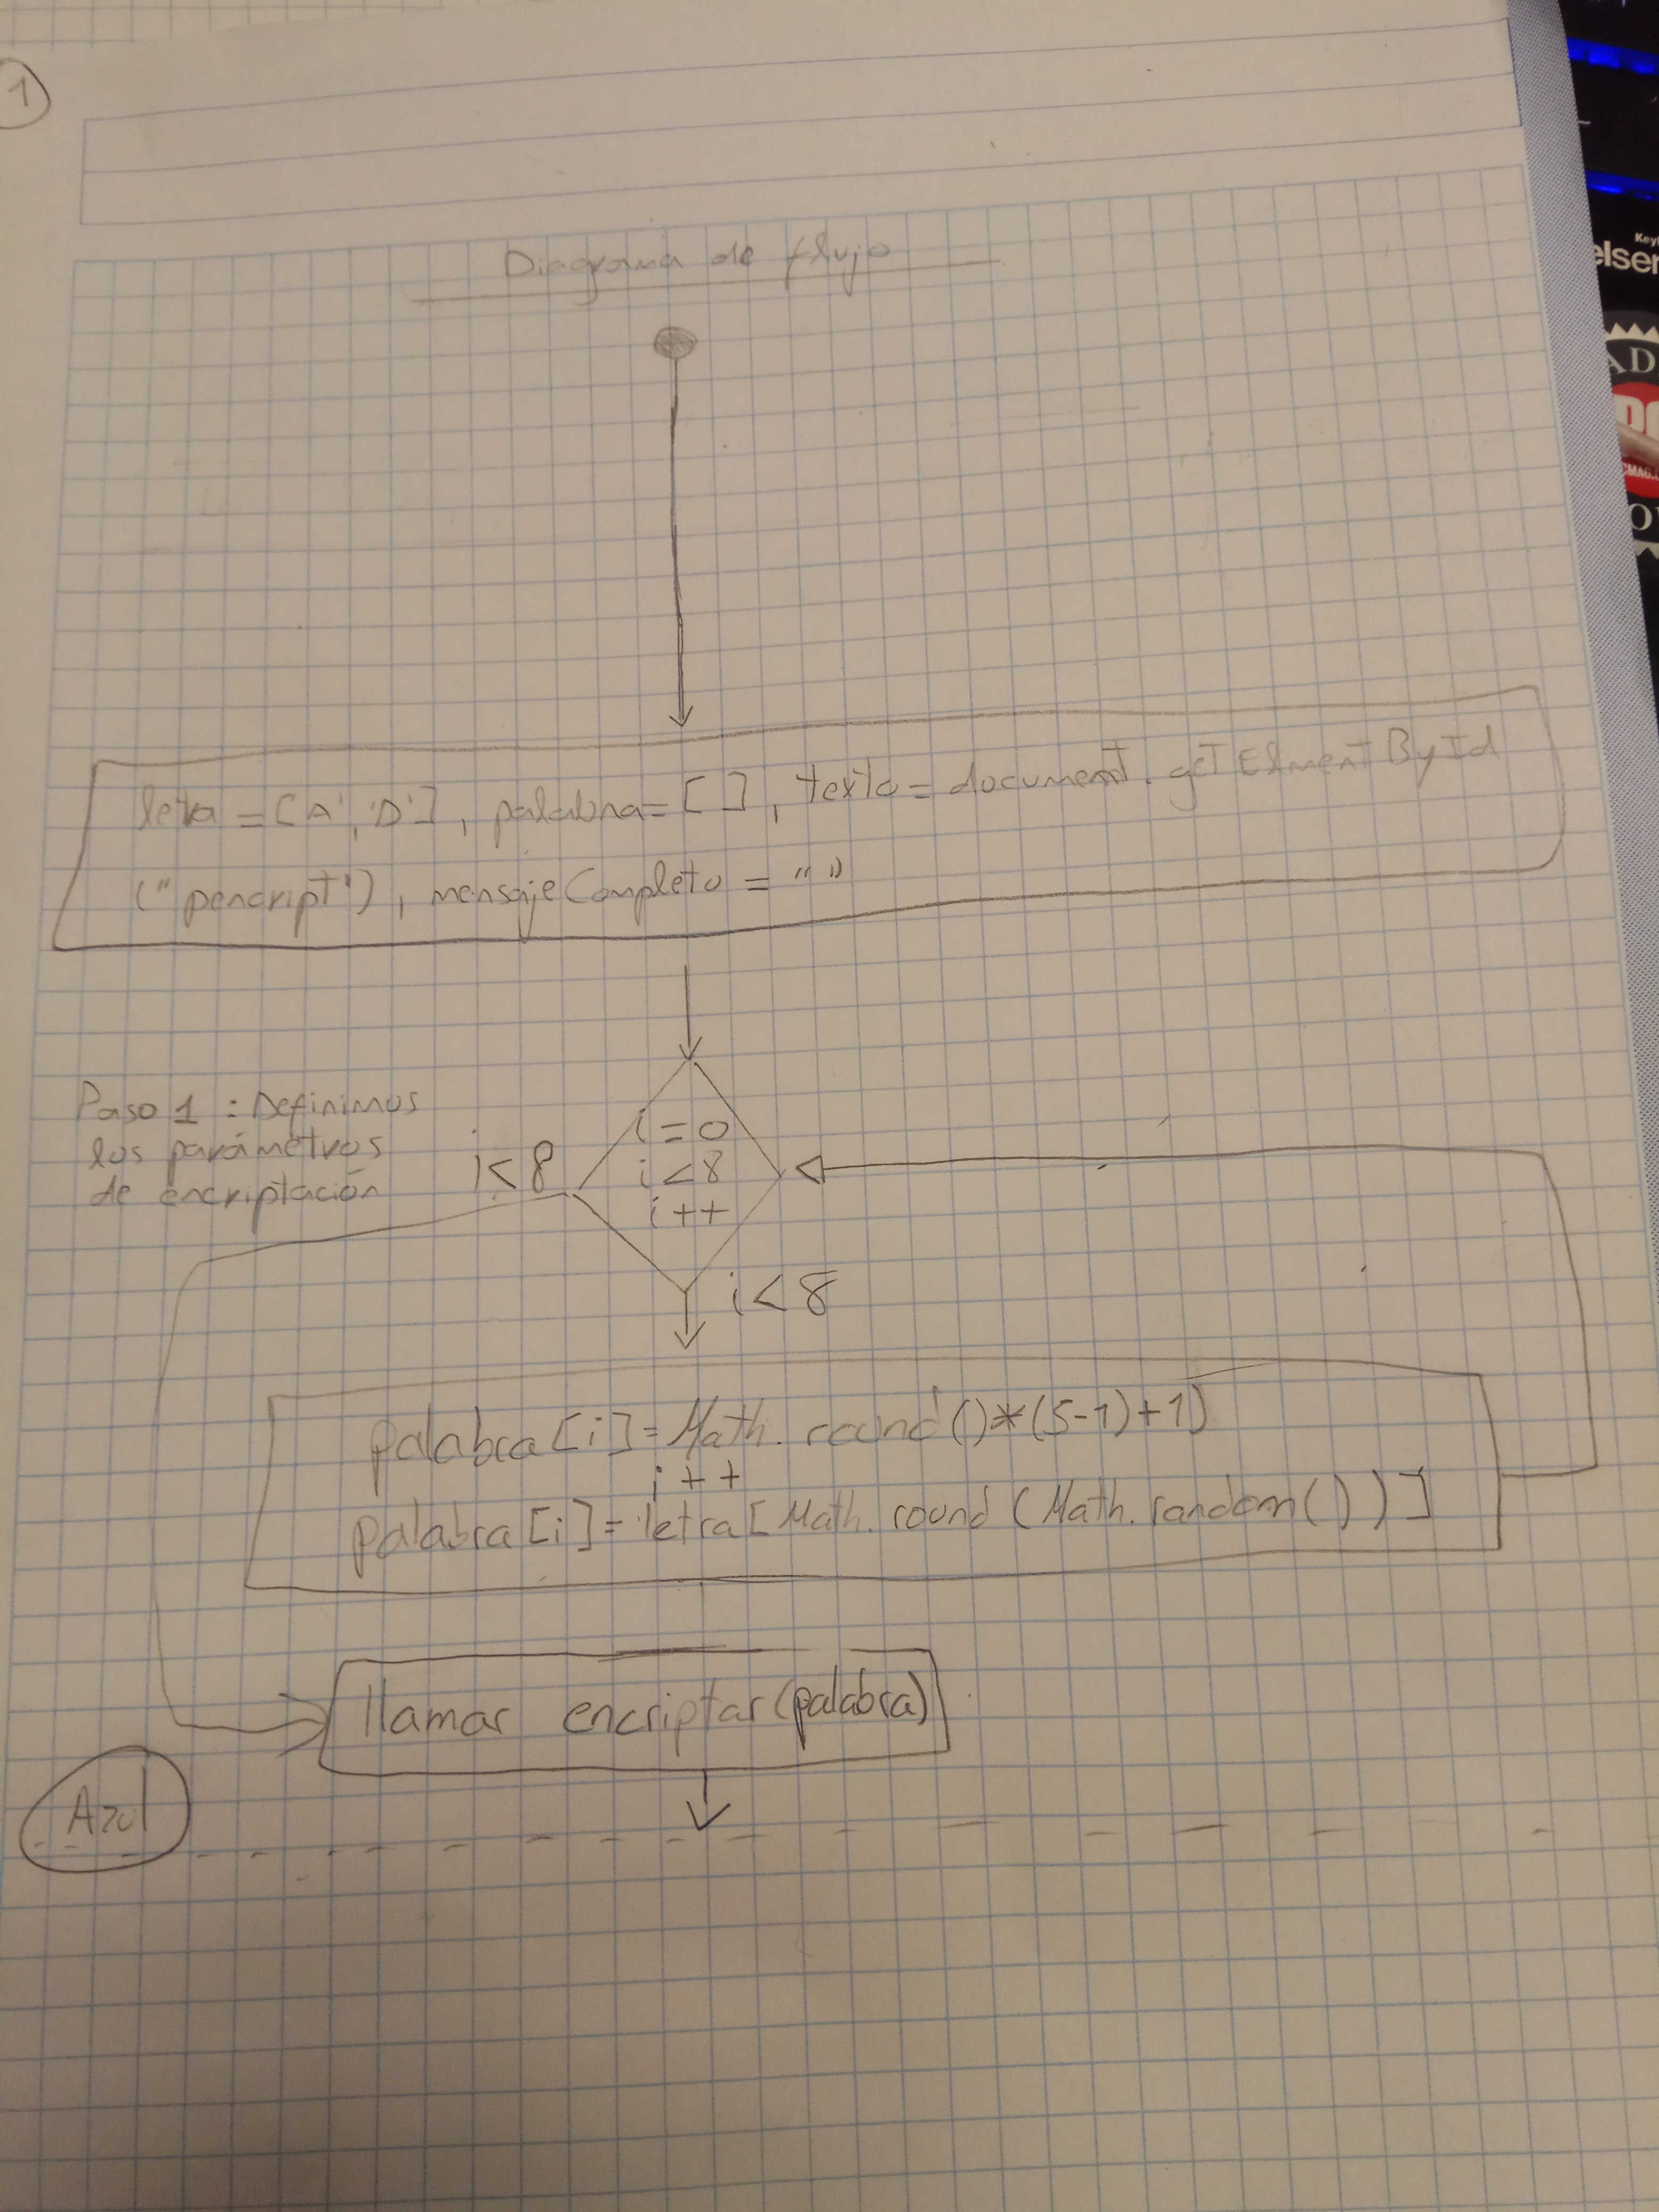 1
Diagrama de flujo
letra = [A', 'D'], palabra= [ ], texto = document. getElmentById
("pencript"), mensajeCompleto = " "
Paso 1 : Definimos
los parámetros
de encriptación
i<8
i=0
i<8
i++
i<8
palabra[i]=Math. round()*(5-1)+1)
i++
palabra[i]= letra[Math. round (Math.random())]
llamar encriptar(palabra)
Azul